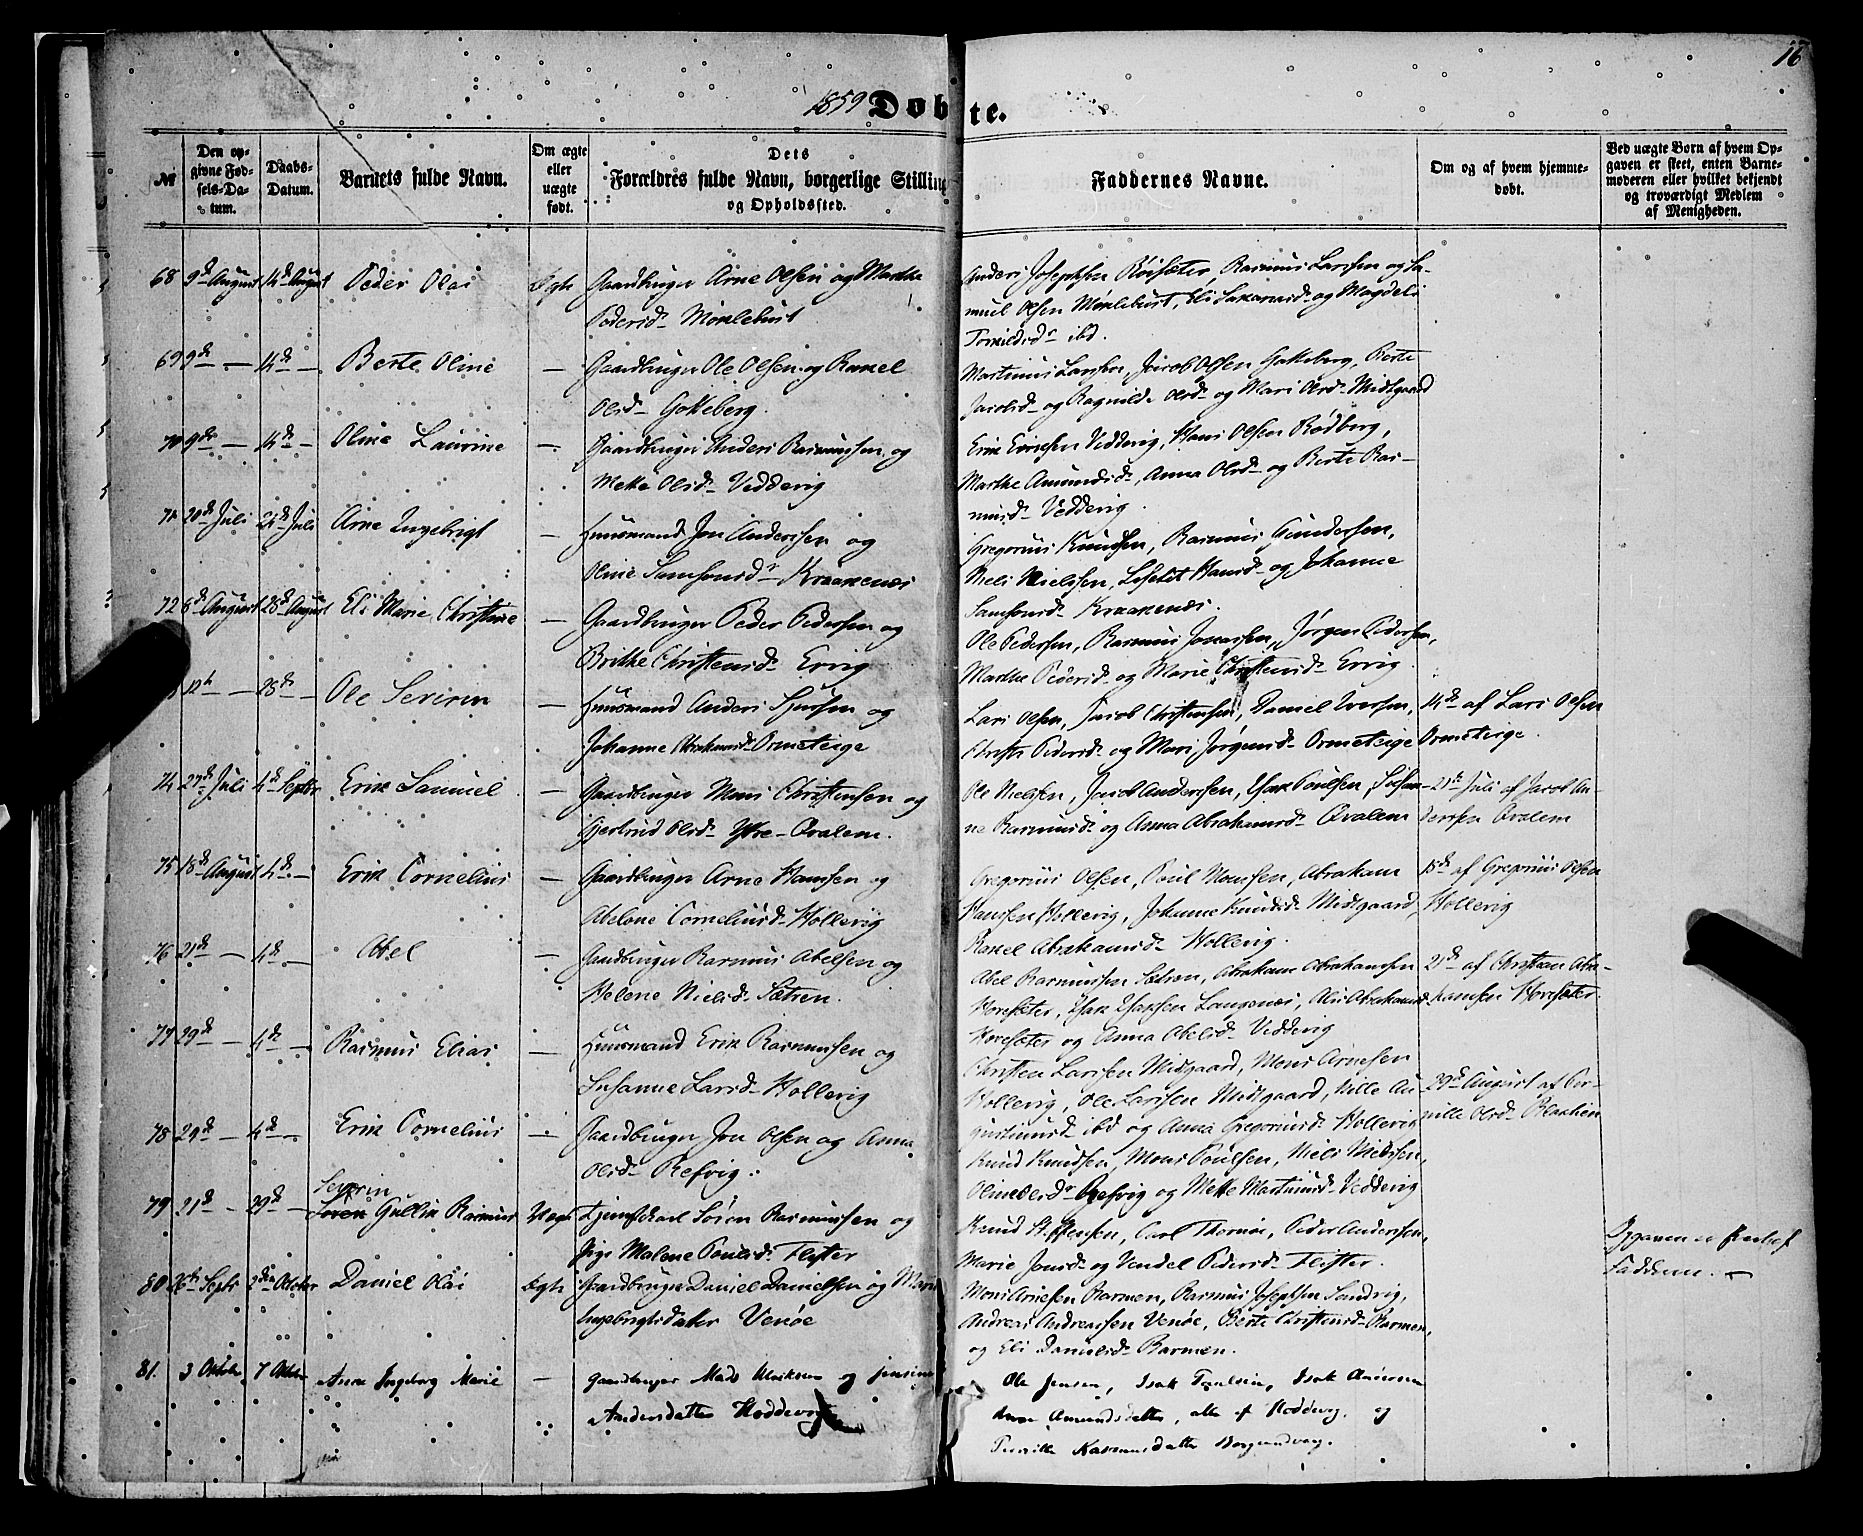 16
1859 Døbte.
№
Den opgivne Fødsels-Datum.
Daabs-Datum.
Barnets fulde Navn.
Om ægte eller uægte født.
Dets Forældres fulde Navn, borgerlige Stilling og Opholdssted.
Faddernes Navne.
Om og af hvem hjemmedøbt.
Ved uægte Børn af hvem Opgaven er skeet, enten Barnemoderen eller hvilket bekjendt og troværdigt Medlem af Menigheden.
68 9de August 14de August Peder Olai Ægte Gaardbruger Arne Olsen og Marthe
Pedersd. Møklebust
Anders Josephsen Røisæter, Rasmus Larssen og Sa-
muel Olsen Møklebust, Eli Zakariasd. og Magdeli
ibd.
69 9de — 14de — Berte Oline — Gaardbruger Ole Olsen og Rakel
Olsd. Gotteberg.
Martinus Larssen, Jacob Olsen Gotteberg, Berte
Jacobsd. og Ragnilde Olsd. og Mari Midtgaard
70 9de — 14de — Oline Laurine — Gaardbruger Anders Rasmussen og
Mette Olsd. Vedderig
Erik Vedderig, Hans Olsen Rødberg,
Marthe Amundsd., Anna Olsd. og Berte Ras-
musd. Vedderig.
71 20de Juli 24de Juli Arne Ingebrigt — Huusmand Jon Anderssen og
Oline Samsonsd. Kraakenæs
Gregorius Knudsen, Rasmus Gundersen,
Niels Nielssen, Lisebet Hansd. og Johanne
Samsonsd. Kraakenæs.
72 August 28de August Eli Marie Christine — Gaardbruger Peder Pedersen og
Brithe Christensd. Ervig
Ole Pedersen, Rasmus Jonassen, Jørgen Pedersen,
Marthe Pedersd. og Marie Christensd. Ervig
12te — 28de — Ole Severin — Huusmand Anders Sjursen og
Johanne Abrahamsd. Ormeteige
Lars Olsen, Jacob Christensen, Daniel Iversen,
Pedersd. og Mari Jørgensd. Ormeteige
14de af Lars Olsen
Ormeteige.
74 27de Juli 4de Septbr Erik Samuel — Gaardbruger Mons Christensen og
Gjertrud Olsd. Ytre-Qvalem.
Ole Nielsen, Jacob Anderssen, Isak Poulsen, Susan-
ne Rasmusd. og Anna Abrahamsd. Qvalem
Juli af Jacob An-
derssen Qvalem
75 18de August 4de — Erik Cornelius — Gaardbruger Arne Hanssen og
Abelone Corneliusd. Hollevig
Gregorius Olsen, Poul Monssen, Abraham
Hanssen Hollevig, Johanne Knudsd. Midtgaard,
Rakel Abrahamsd. Hollevig.
18de af Gregorius Olsen
Hollevig
76 21de — 4de — Abel — Gaardbruger Rasmus Abelsen og
Helene Nielsd. Sætren.
Abel Rasmussen Sætren, Abraham Abrahamsen
Hovesæter, Isak Isaksen Langenæs, Abrahamsd.
Hovesæter og Anna Abelsd. Vedderig
21de af Christian Abra-
hamsen Hovesæter.
77 29de — 4de — Rasmus Elias — Huusmand Erik Rasmussen og
Susanne Larsd. Hollevig
Christen Larssen Midgaard, Mons Arnesen
Hollevig, Ole Larssen Midtgaard, Nille Au-
gustinusd. ibd og Anna Gregoriusd. Hollevig
29de August af Per-
nille Olsd.
78 29de — 4de — Erik Cornelius — Gaardbruger Jon Olsen og Anna
Olsd. Refvig.
Knud Knudsen, Mons Poulsen, Niels Nielssen,
Refvig og Mette Martinusd. Vedderig
79 21de — 29de — Severin Gullik Rasmus Uægte Ungkarl Søren Rasmussen og
Pige Malene Poulsd. Flister
Knud Steffensen, Carl Thorsøe, Peder Anderssen,
Marie Jonsd. og Vendel Pedersd. Flister.
Opgaven er skeet af
Faddrene. —
80 26de Septbr 2den October Daniel Olai Ægte Gaardbruger Daniel Danielssen og Mari
Ingebrigtsdatter Venøe
Mons Arnesen Barmen, Rasmus Josephsen Sandvig,
Andreas Andreassen Venøe, Berte Christensd. Barmen,
og Eli Danielsd. Barmen.
81. 3 Oktober 7 Oktober Anne Ingeborg Marie — Gaardbruger Mads og Jensine
Andersdatter Hoddevig
Ole Jensen, Isak Poulsen, Isak
Amundsdatter, alle af Hoddevig, og
Pernille Rasmusdatter